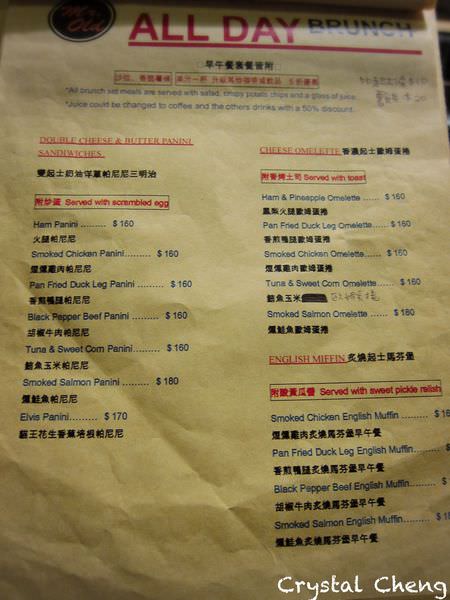 Mr. Old
ALL DAY BRUNCH
早午餐套餐皆附
沙拉、香脆薯條 果汁一杯
*All brunch set meals are served with salad, crispy potato chips and a glass of juice.
*Juice could be changed to coffee and the others drinks with a 50% discount.
DOUBLE CHEESE & BUTTER PANINI SANDWICHES
雙起士奶油洋蔥帕尼尼三明治
附炒蛋 Served with scrambled egg
Ham Panini ......... $ 160
火腿帕尼尼
Smoked Chicken Panini ......... $ 160
煙燻雞肉帕尼尼
Pan Fried Duck Leg Panini ......... $ 160
香煎鴨腿帕尼尼
Black Pepper Beef Panini ......... $ 160
胡椒牛肉帕尼尼
Tuna & Sweet Corn Panini ......... $ 160
鮪魚玉米帕尼尼
Smoked Salmon Panini ......... $ 180
燻鮭魚帕尼尼
Elvis Panini ......... $ 170
貓王花生香蕉培根帕尼尼
CHEESE OMELETTE 香濃起士歐姆蛋捲
附香烤土司 Served with toast
Ham & Pineapple Omelette ...... $ 160
鳳梨火腿歐姆蛋捲
Pan Fried Duck Leg Omelette ...... $ 160
香煎鴨腿歐姆蛋捲
Smoked Chicken Omelette ...... $ 160
煙燻雞肉歐姆蛋捲
Tuna & Sweet Corn Omelette ...... $ 160
鮪魚玉米
Smoked Salmon Omelette ...... $ 180
燻鮭魚歐姆蛋捲
ENGLISH MIFFIN 炙燒起士馬芬堡
附酸黃瓜醬 Served with sweet pickle relish
Smoked Chicken English Muffin ......... $ 16
煙燻雞肉炙燒馬芬堡早午餐
Pan Fried Duck Leg English Muffin .........
香煎鴨腿炙燒馬芬堡早午餐
Black Pepper Beef English Muffin ......... $ 1
胡椒牛肉炙燒馬芬堡早午餐
Smoked Salmon English Muffin ......... $ 1
燻鮭魚炙燒馬芬堡早午餐
Crystal Cheng